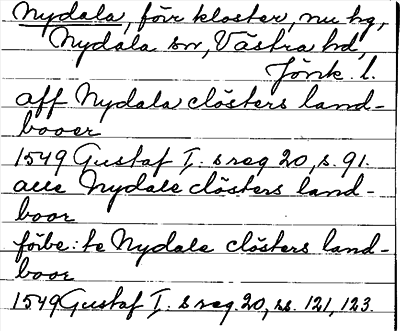 Nydala, förr kloster, nu hg,
Nydala sn, Västra hd,
Jönk. l.
aff Nydala clösters land-
booer
1549 Gustaf I:s reg 20, s. 91.
alle Nydale clösters land-
boor
förbe:te Nydale clösters land-
boor
1549 Gustaf I:s reg. 20, ss. 121, 123.